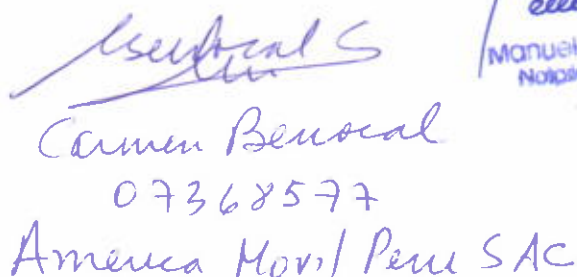 Manuel
Carmen Berrocal
07368577
America Movil Peru SAC